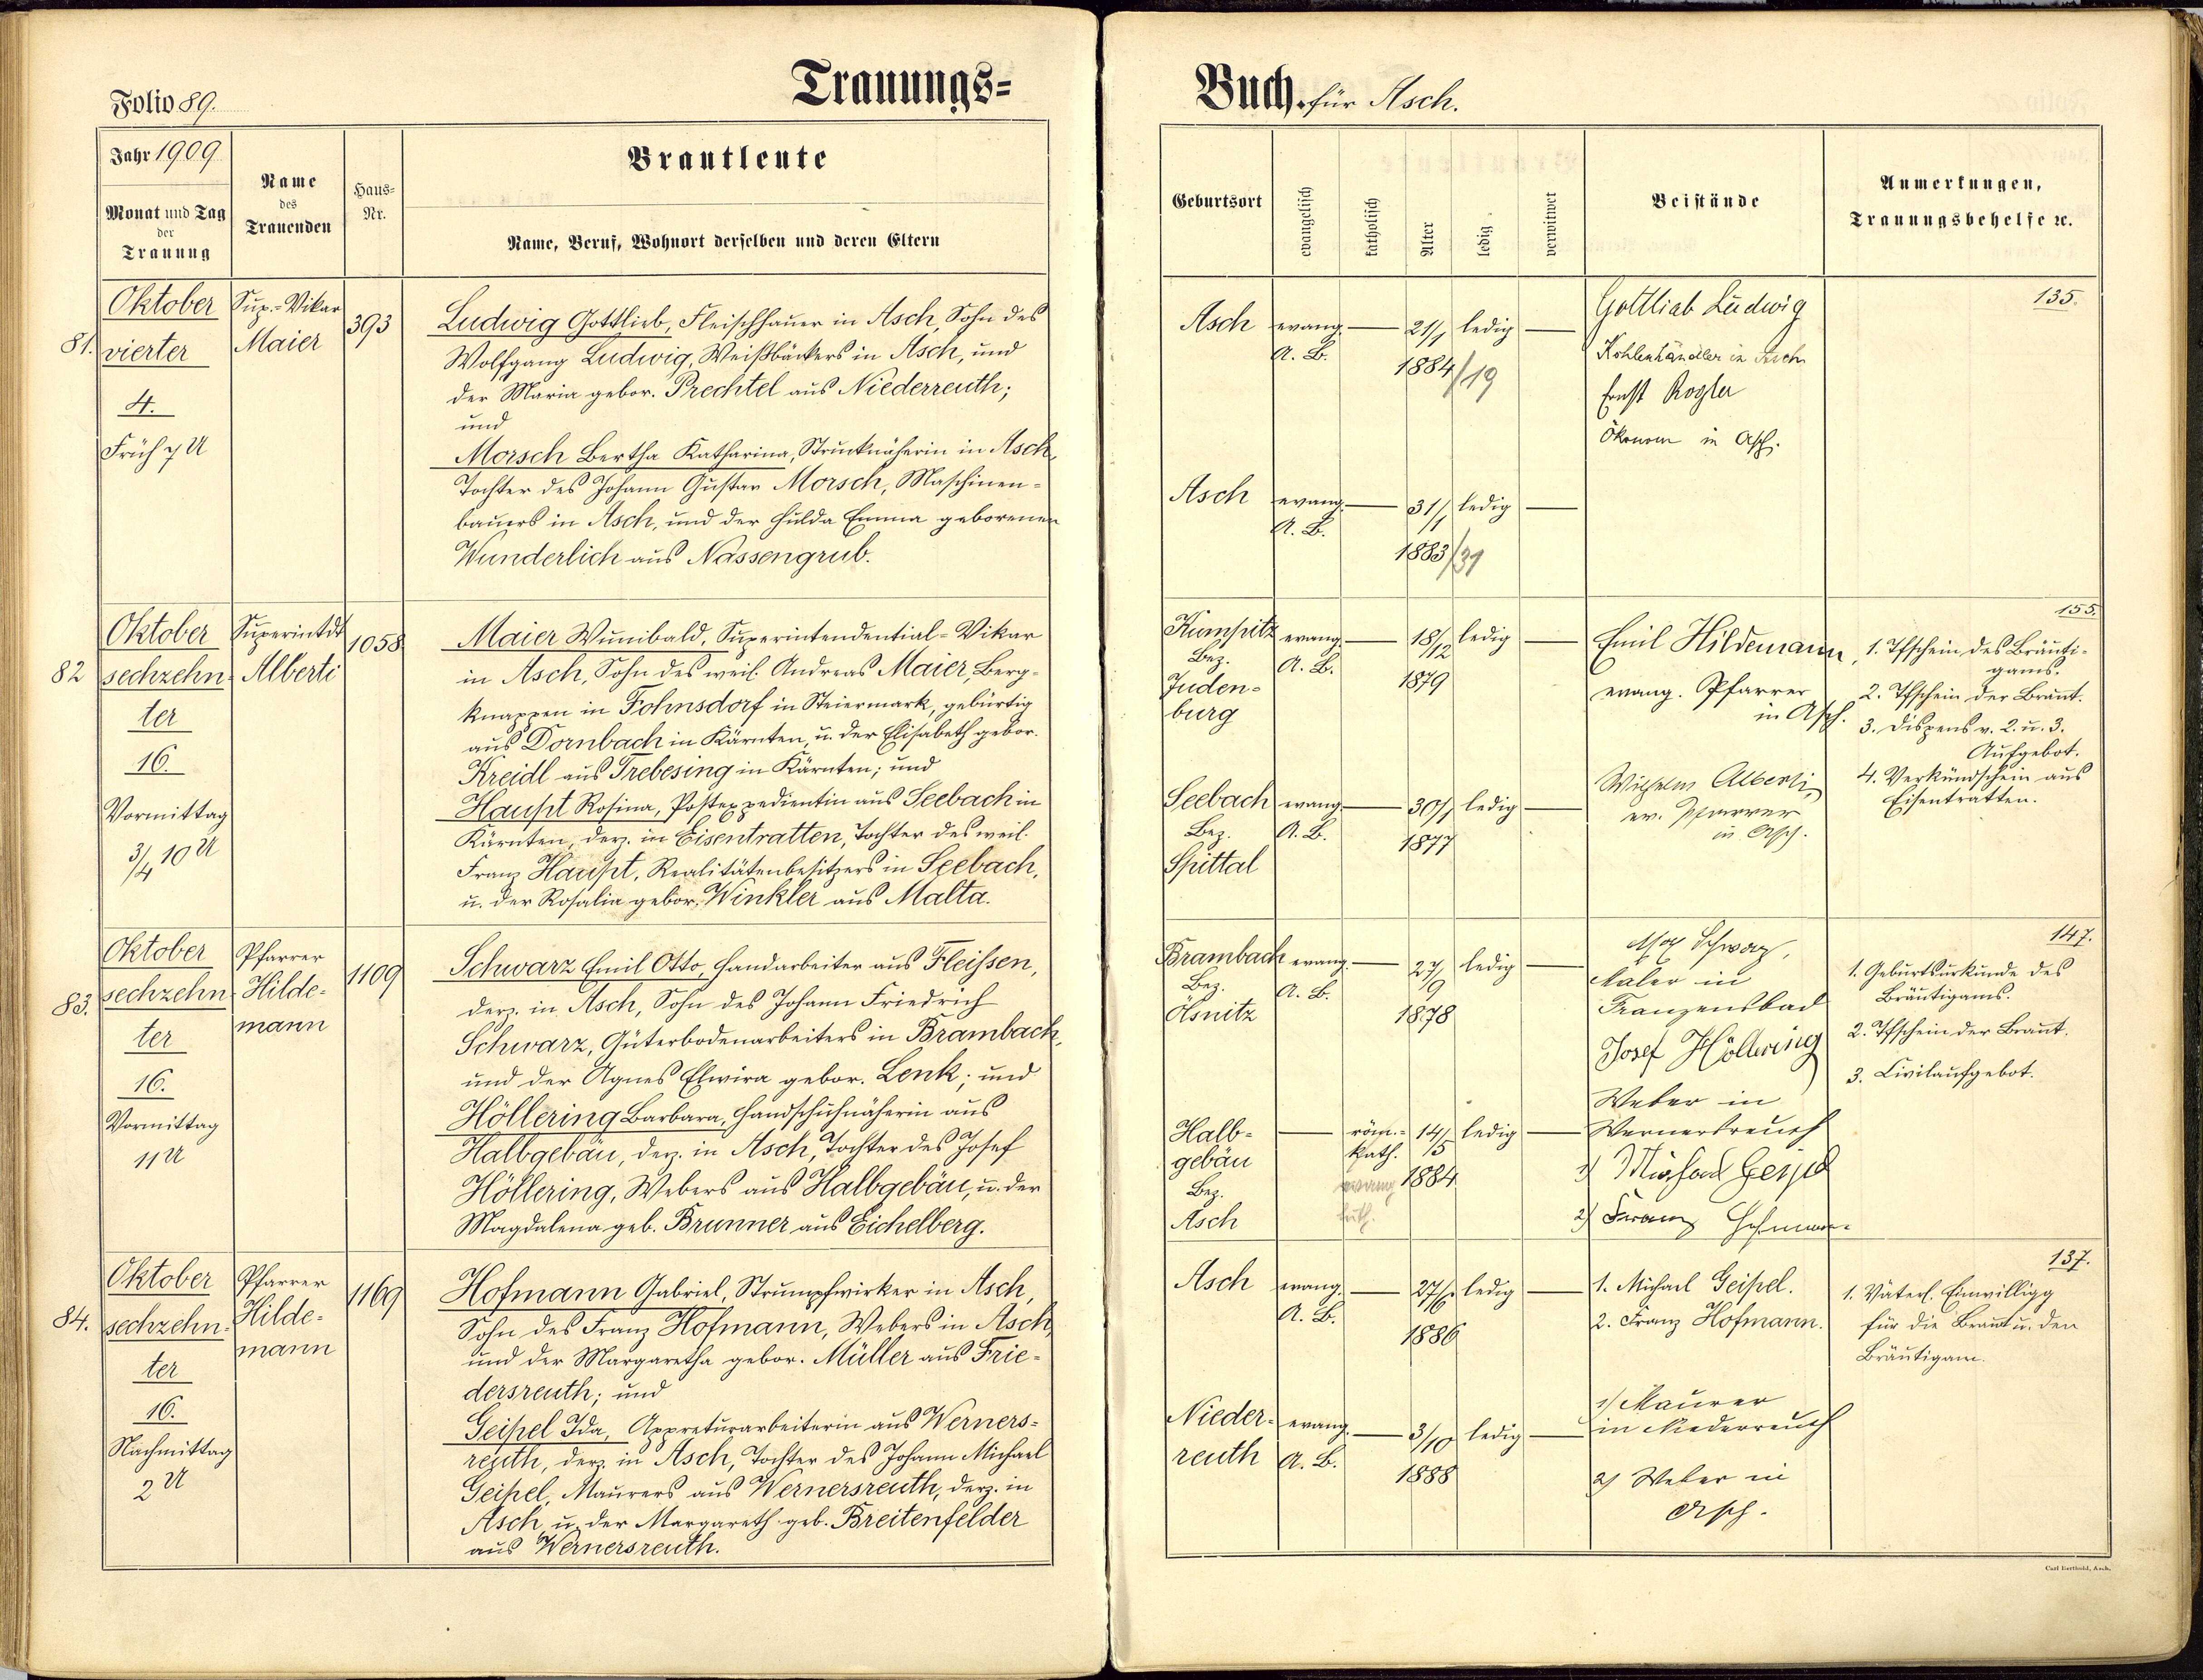 Folio 89.
Trauungs=
Jahr 1909
Monat und Tag
der
Trauung
Name
des
Trauenden
Haus=
Nr.
Brautleute
Name, Beruf, Wohnort derselben und deren Eltern
81.
Oktober
vierter
4.
Früh 7 U
Sup.=Vikar
Maier
393
Ludwig Gottlieb, Fleischhauer in Asch, Sohn des
Wolfgang Ludwig, Weißbäckers in Asch, und
der Maria gebor. Prechtel aus Niederreuth;
und
Morsch Bertha Katharina, Strucknäherin in Asch,
Tochter des Johann Gustav Morsch, Maschinen=
bauers in Asch, und der Hulda Emma geborenen
Wunderlich aus Nassengrub.
82
Oktober
sechzehn=
ter
16.
Vormittag
3/4 10 U
Superintdt
Alberti
1058
Maier Wunibald, Superintendential=Vikar
in Asch, Sohn des weil. Andreas Maier, Berg=
knappen in Fohnsdorf in Steiermark, gebürtig
aus Dornbach in Kärnten, u. der Elisabeth gebor.
Kreidl aus Trebesing in Kärnten; und
Haupt Rosina, Postexpedientin aus Seebach in
Kärnten, derz. in Eisentratten, Tochter des weil.
Franz Haupt, Realitätenbesitzers in Seebach,
u. der Rosalia gebor. Winkler aus Malta.
83.
Oktober
sechzehn=
ter
16.
Vormittag
11 U
Pfarrer
Hilde=
mann
1109
Schwarz Emil Otto, Handarbeiter aus Fleissen,
derz. in Asch, Sohn des Johann Friedrich
Schwarz, Güterbodenarbeiters in Brambach,
und der Agnes Elwira gebor. Lenk; und
Höllering Barbara, Handschuhnäherin aus
Halbgebäu, derz. in Asch, Tochter des Josef
Höllering, Webers aus Halbgebäu, u. der
Magdalena geb. Brunner aus Eichelberg.
84.
Oktober
sechzehn=
ter
16.
Nachmittag
2 U
Pfarrer
Hilde=
mann
1169
Hofmann Gabriel, Strumpfwirker in Asch,
Sohn des Franz Hofmann, Webers in Asch,
und der Margaretha gebor. Müller aus Frie=
dersreuth; und
Geipel Ida, Appreturarbeiterin aus Werners=
reuth, derz. in Asch, Tochter des Johann Michael
Geipel, Maurers aus Wernersreuth, derz. in
Asch u. der Margareth geb. Breitenfelder
aus Wernersreuth.
Buch. für Asch.
Geburtsort
evangelisch
katholisch
Alter
ledig
verwitwet
Beistände
Anmerkungen,
Trauungsbehelfe ꝛc.
Asch
evang.
A. B.
21/1
1884/19
ledig
Gottlieb Ludwig
Kohlenhändler in Asch
Ernst Rogler
Ökonom in Asch.
135.
Asch
evang.
A. B.
31/1
1883/31
ledig
Kumpitz
Bez.
Juden=
burg
evang.
A. B.
18/12
1879
ledig
Emil Hildemann,
evang. Pfarrer
in Asch.
155.
1. Tfschein des Bräuti=
gams.
2. Tfschein der Braut.
3. Dispens v. 2. u. 3.
Aufgebot.
4. Verkündschein aus
Eisentratten.
Seebach
Bez.
Spittal
evang.
A. B.
30/1
1877
ledig
Wilhelm Alberti,
ev. Pfarrer
in Asch.
Brambach
Bez.
Ölsnitz
evang.
A. B.
27/9
1878
ledig
Schwarz,
Maler in
Franzensbad
Josef Höllering
Weber in
Wernersreuth
147.
1. Geburtsurkunde des
Bräutigams.
2. Tfschein der Braut.
3. Civilaufgebot.
Halb=
gebäu
Bez.
Asch
röm.=
kath.
evang
14/5
1884
ledig
1) Michael Geipel
2) Franz Hofmann
Asch
evang.
A. B.
27/6
1886
ledig
1. Michael Geipel.
2. Franz Hofmann.
137.
1. Väterl. Einwilligg
für die Braut u. den
Bräutigam.
Nieder=
reuth
evang.
A. B.
3/10
1888
ledig
1) Maurer
in Niederreuth
2) Weber in
Asch.
Carl Berthold, Asch.